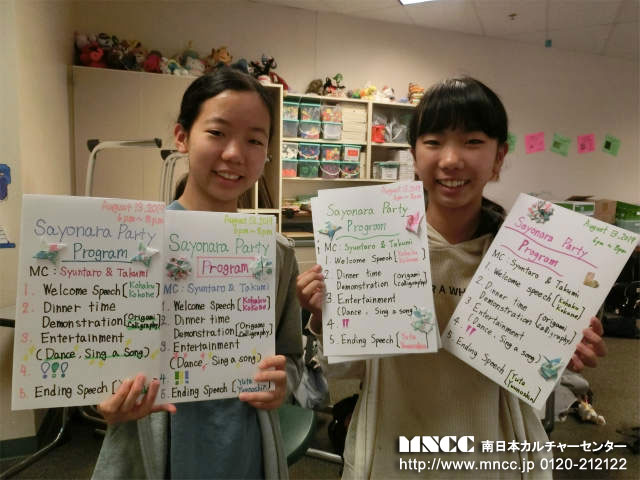 August 13, 2019
6pm~8pm
Sayonara Party
Program
MC: Syuntaro & Takumi
1. Welcome Speech [Kohaku Kokone]
2. Dinner time
Demonstration [Origami Calligraphy]
3. Entertainment
(Dance, Sing a Song)
4. !!
5. Ending Speech
August 13, 2019
6pm~8pm
Sayonara Party
Program
MC: Syuntaro & Takumi
1. Welcome Speech [Kohaku Kokone]
2. Dinner time
Demonstration [Origami Calligraphy]
3. Entertainment
(Dance, Sing a song)
4. !!
5. Ending Speech [Yuta
Sayonara Party
Program
MC: Syuntaro & Takumi
1. Welcome Speech
2. Dinner time
Demonstration [Origami Calligraphy]
3. Entertainment
(Dance, Sing a song)
4. !!
5. Ending Speech [Yuta
August 13, 2019
6pm~8pm
Sayonara Party
Program
MC: Syuntaro & Takumi
1. Welcome Speech [Kohaku Kokone]
2. Dinner time
Demonstration [Origami Calligraphy]
3. Entertainment
(Dance, Sing a song)
4. !!
5. Ending Speech [Yuta
MNCC 南日本カルチャーセンター
http://www.mncc.jp 0120-212122